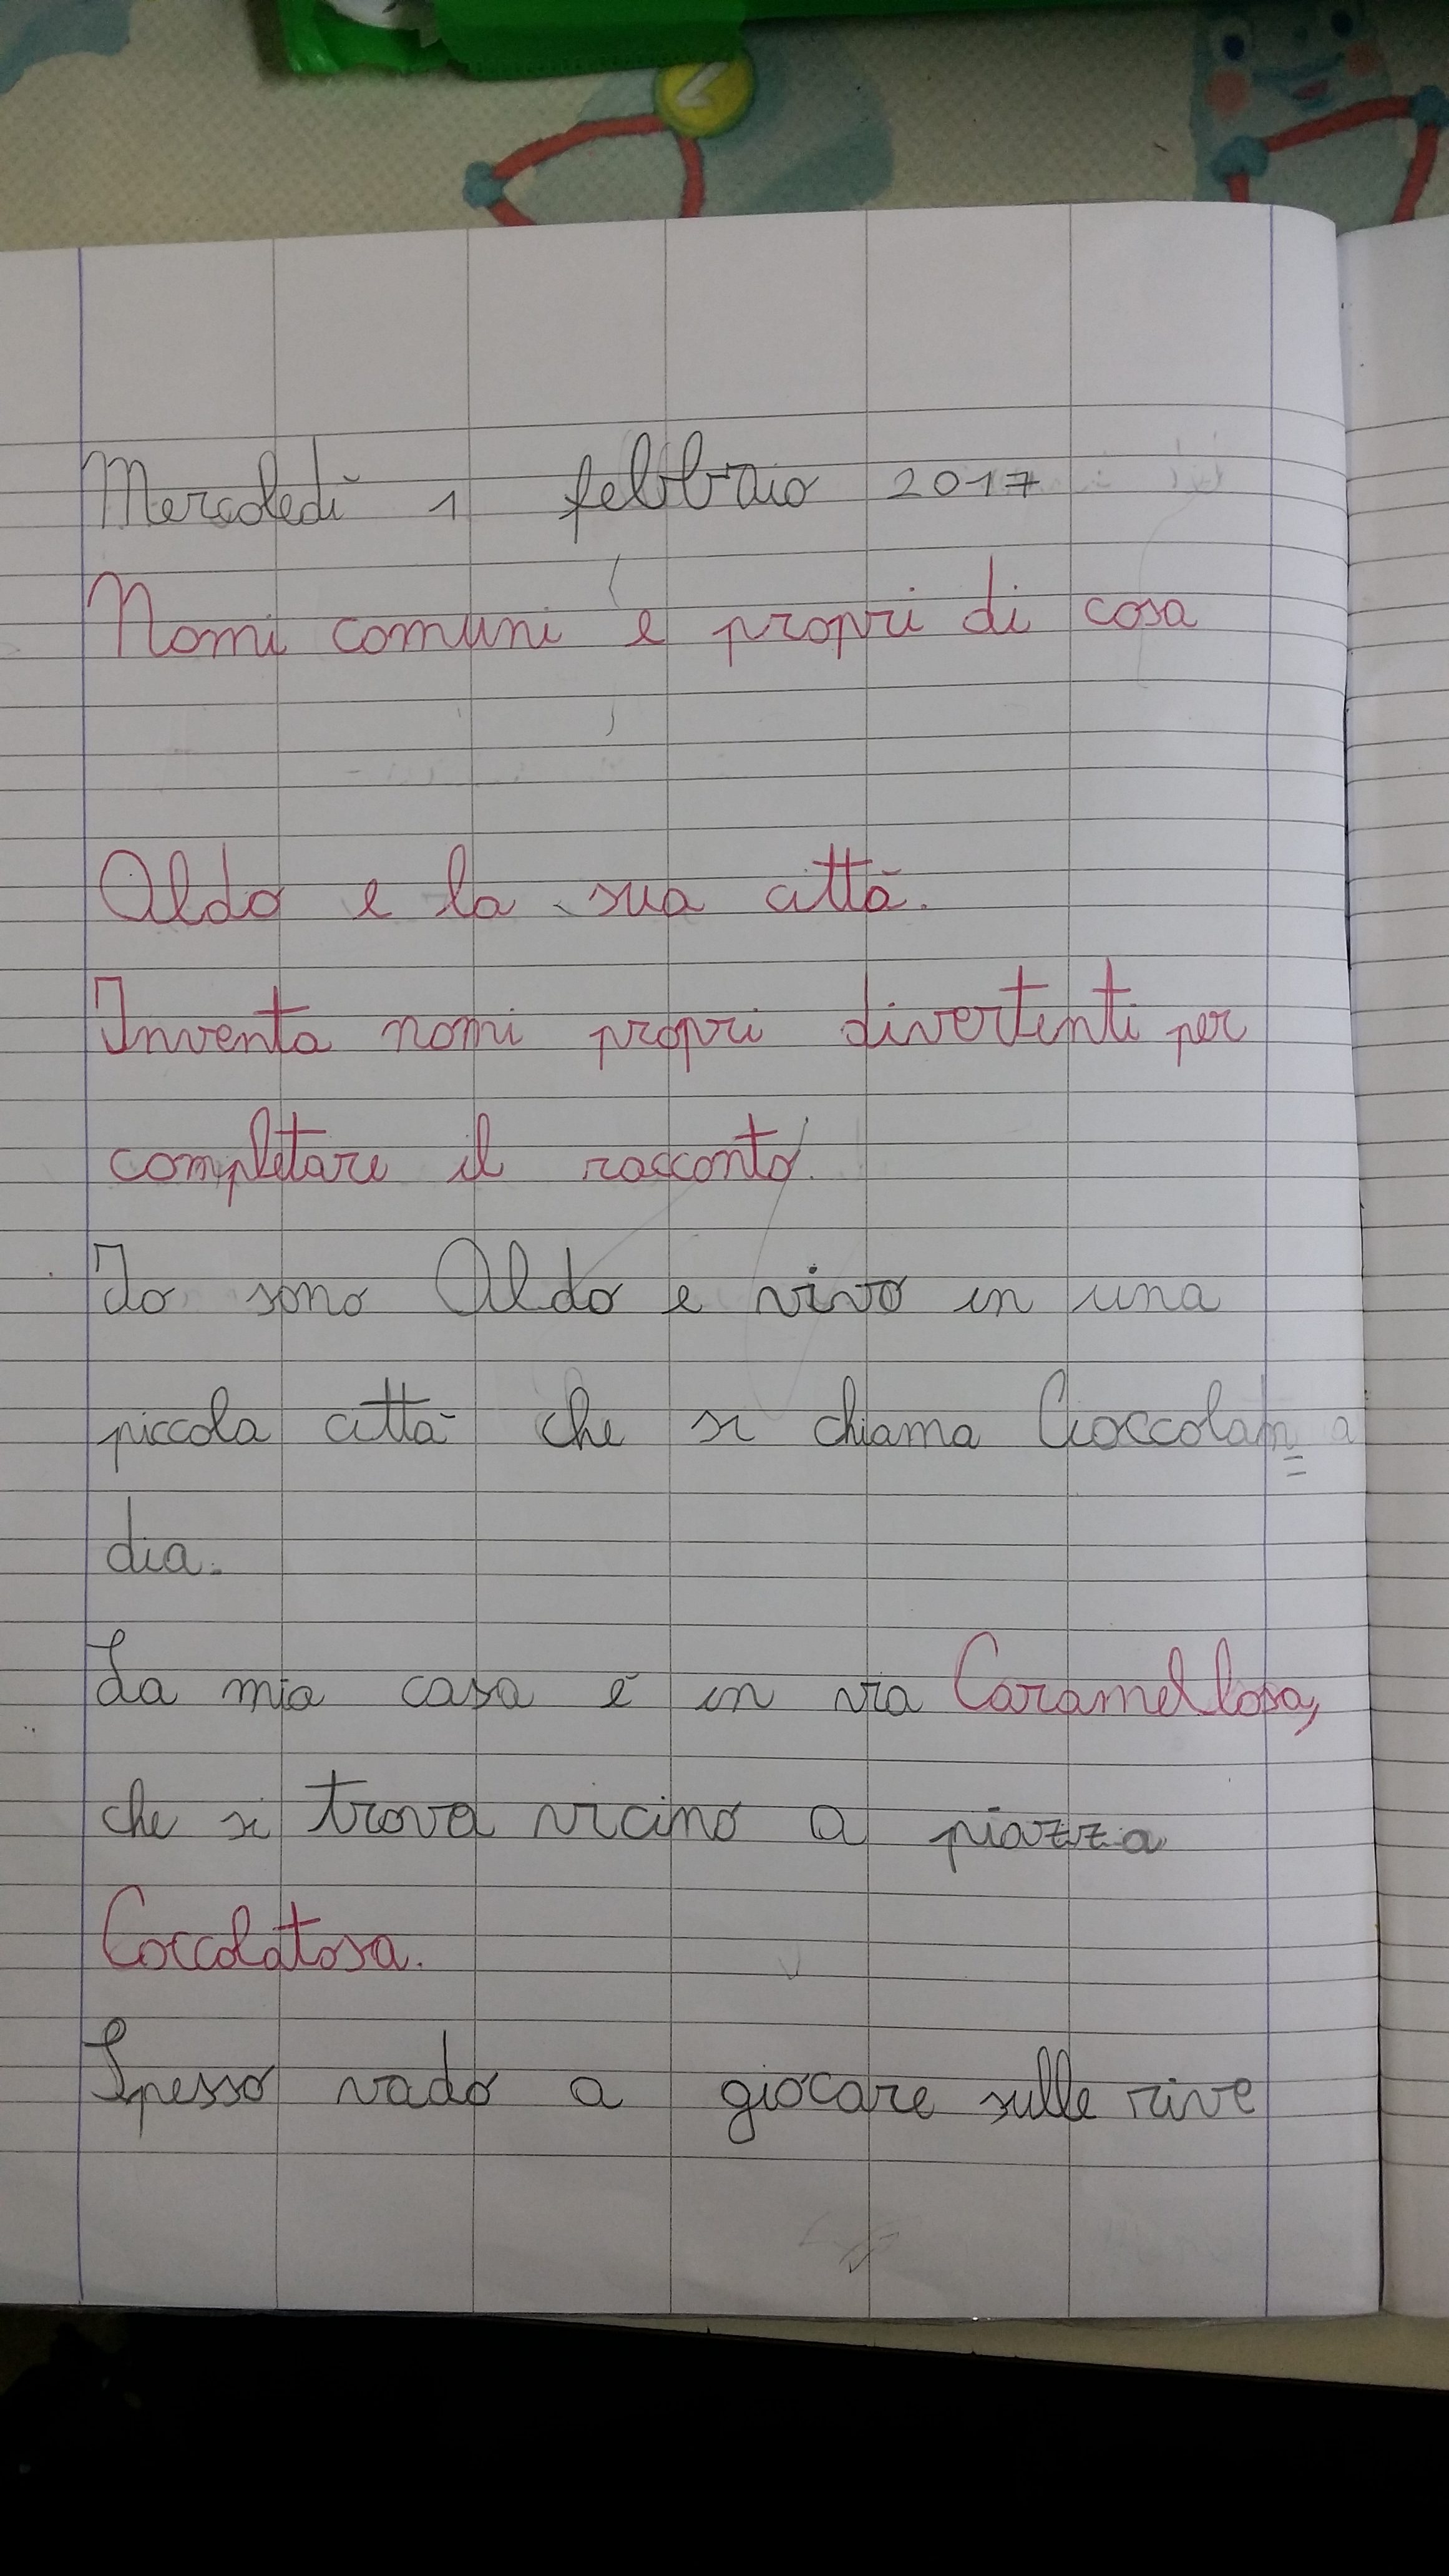 Mercoledì 1 febbraio 2017
Nomi comuni e propri di cosa
Aldo e la sua città.
Inventa nomi propri divertenti per
completare il racconto.
Io sono Aldo e vivo in una
piccola città che si chiama Cioccolan=
dia.
La mia casa è in via Caramellosa,
che si trova vicino a piazza
Coccolatosa.
Spesso vado a giocare sulle rive